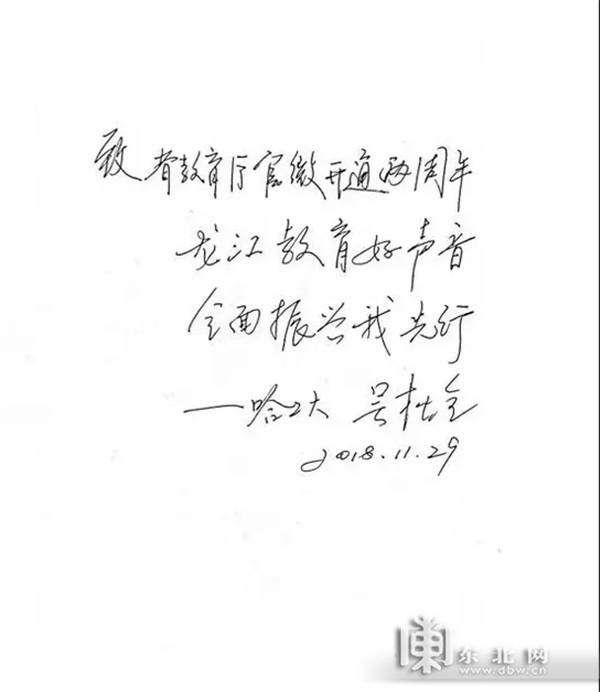 致省教育厅官微开通两周年
龙江教育好声音
全面振兴我先行
—哈工大 吴林
2018.11.29
東 东北网
www.dbw.cn